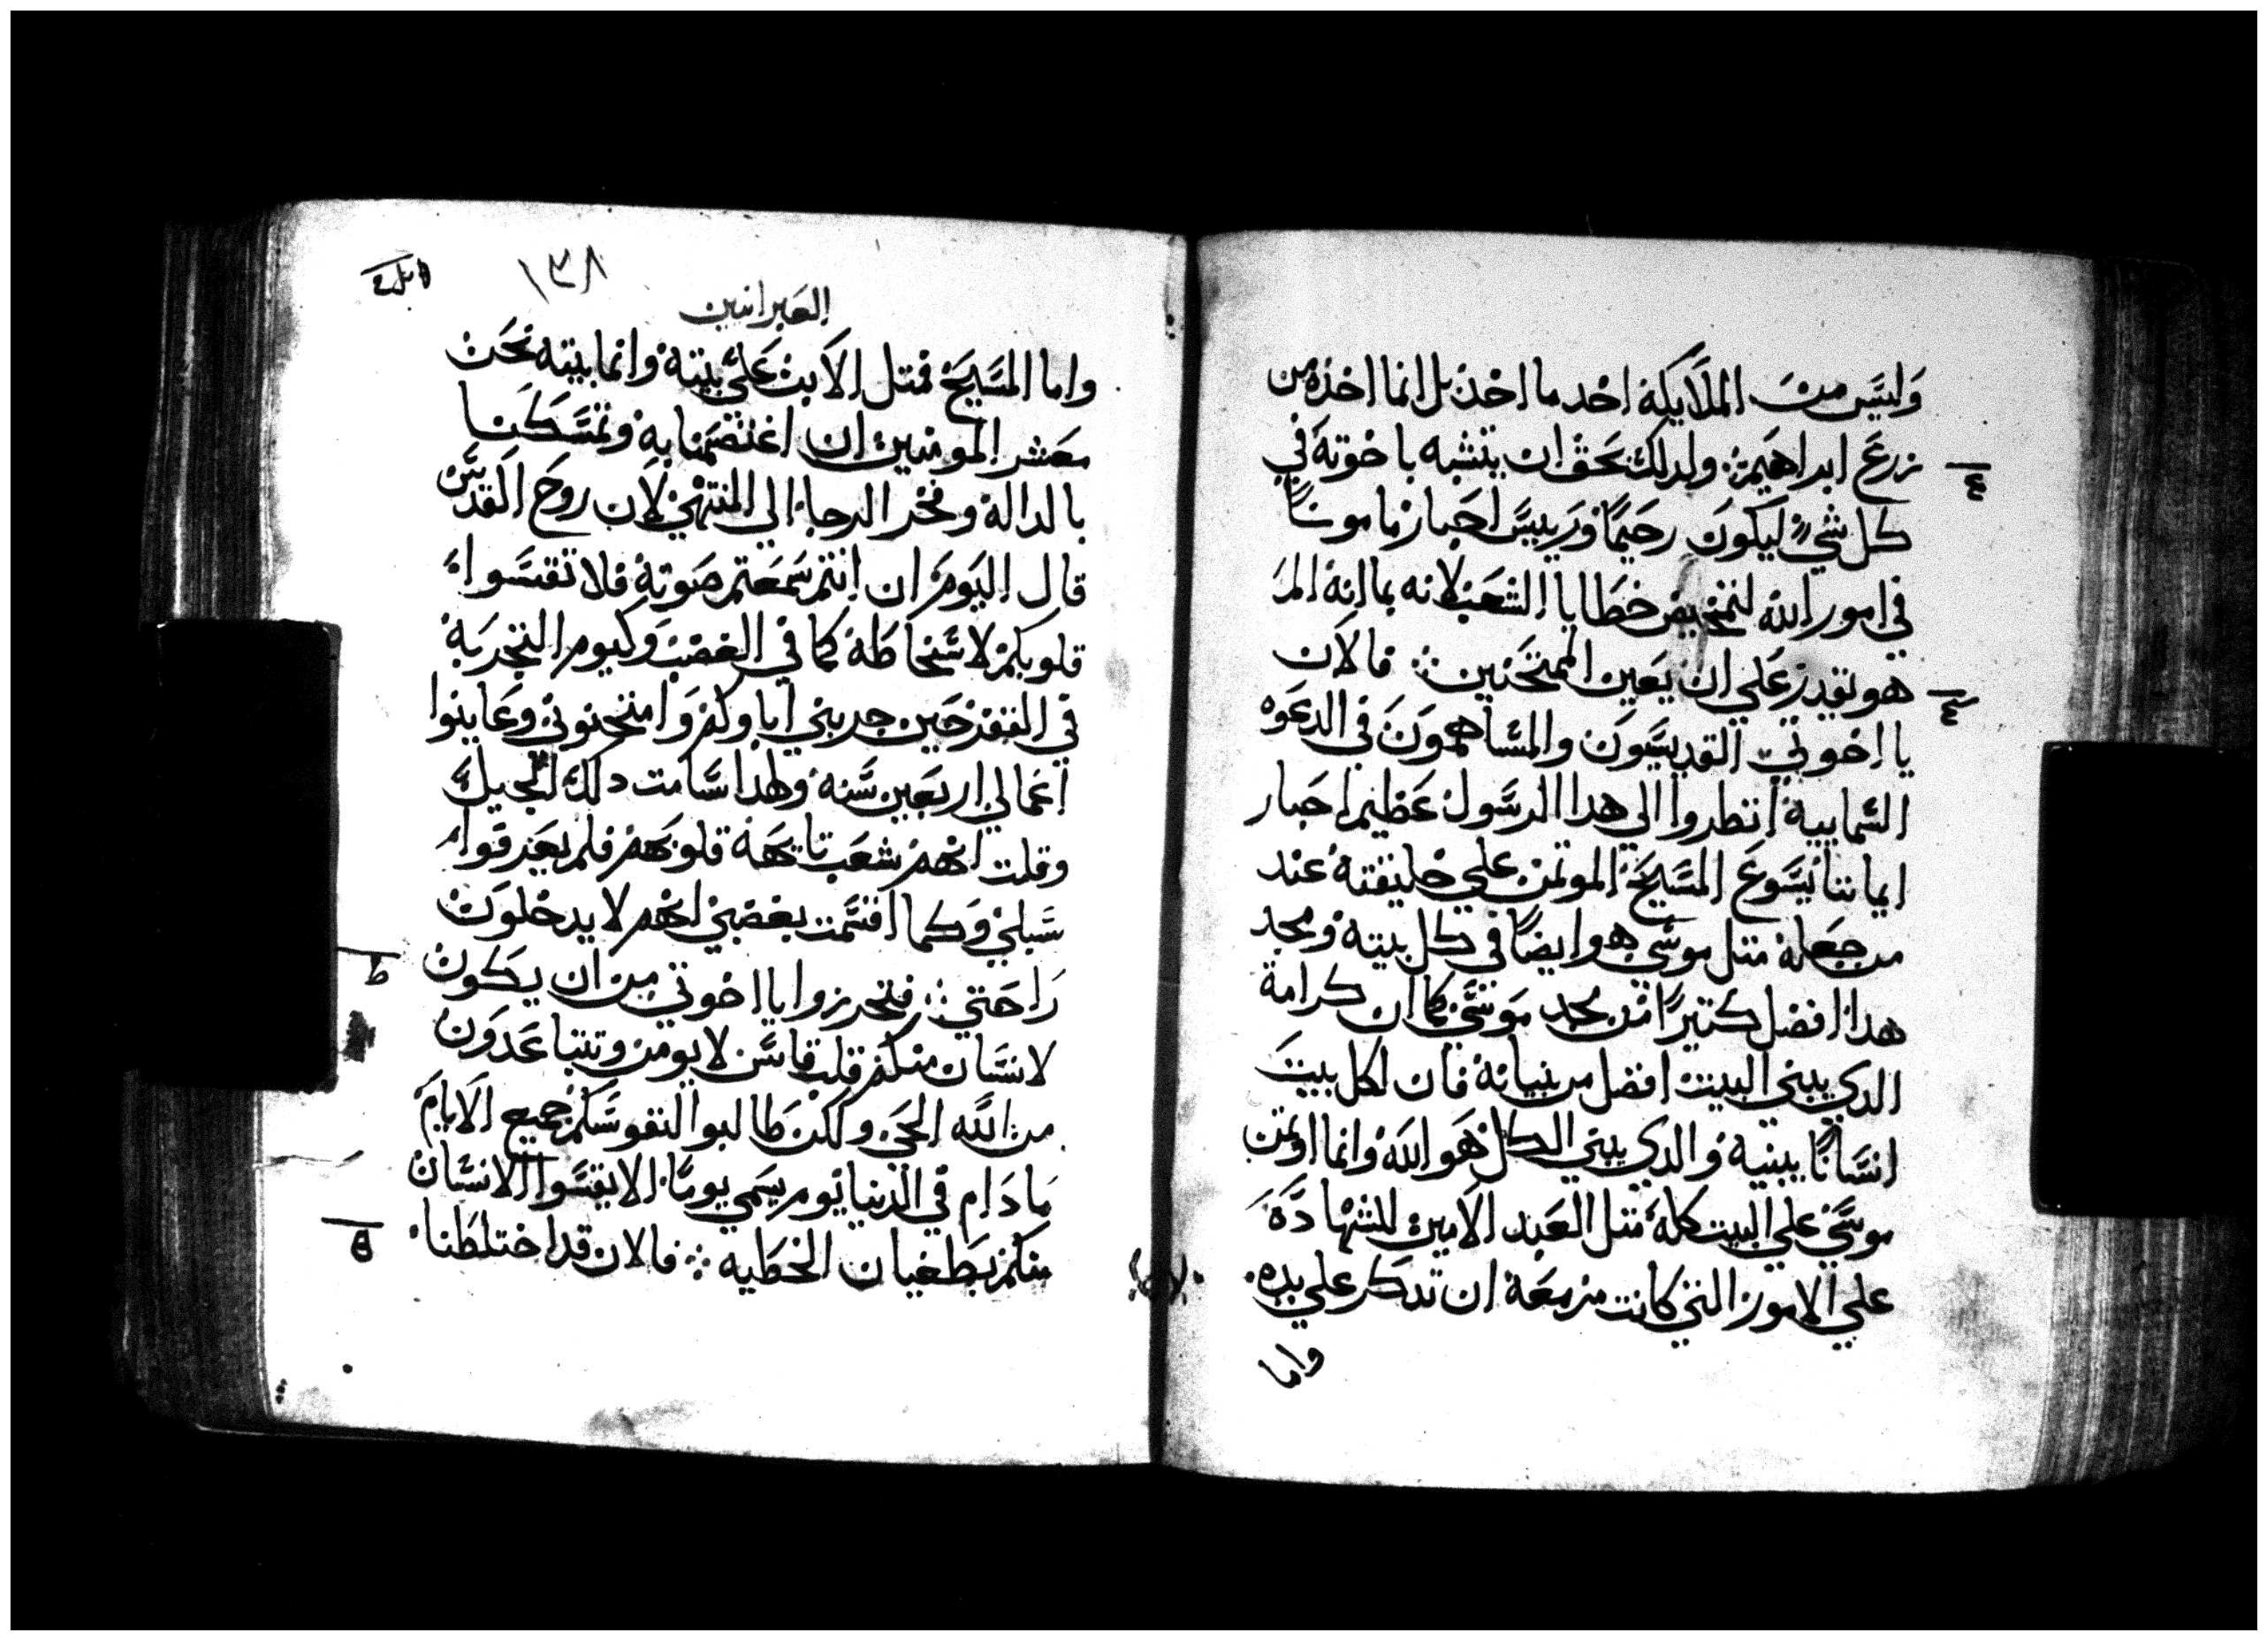 وليس من الملايكة احد ما اخذ بل انما اخذه من
زرع ابراهيم ولدلك يحق ان يتشبه باخوته في
كل شي ليكون رحيما وريس احبار مامونا
في امور الله لتمحيص خطايا الشعب لانه بما انه الم
هو يقدر علي ان يعين الممتحنين فالان
يا اخوتي القديسون والمساهمون في الدعوه
السمايية انطروا الي هدا الرسول عظيم احبار
ايماننا يسوع المسيح الموتمن علي خليقته عند
من جعله متل موسي هو ايضا في كل بيته ومجد
هدا افضل كتيرا من مجد موسي كما ان كرامة
الدي يبني البيت افضل من بنيانه فان لكل بيت
انسانا يبنيه والدي يبني الكل هو الله وانما اوتمن
موسي علي البيت كله متل العبد الامين للشهادة
علي الامور التي كانت مزمعة ان تدكر علي يده
واما
١٣٨
العبرانيين
واما المسيح فمتل الابن علي بيته وانما بيته نحن
معشر المومنين ان اعتصمنا به وتمسكنا
بالدالة وفخر الرجا الي المنتهي لان روح القدس
قال اليوم ان انتم سمعتم صوته فلا تقسوا
قلوبكم لاسخاطه كما في الغضب وكيوم التجربة
في القفر حين جربني اباوكم وامتحنوني وعاينوا
اعمالي اربعين سنه ولهدا سامت دلك الجيل
وقلت انهم شعب تايهة قلوبهم فلم يعرفوا
سبلي وكما اقسمت بغضبي انهم لا يدخلون
راحتي فتحرزوا يا اخوتي من ان يكون
لانسان منكم قلب قاس لا يومن وتتباعدون
من الله الحي ولكن طالبوا نفوسكم جميع الايام
ما دام في الدنيا يوم يسمي يوما الا يقسوا الانسان
منكم بطغيان الخطيه فالان قد اختلطنا